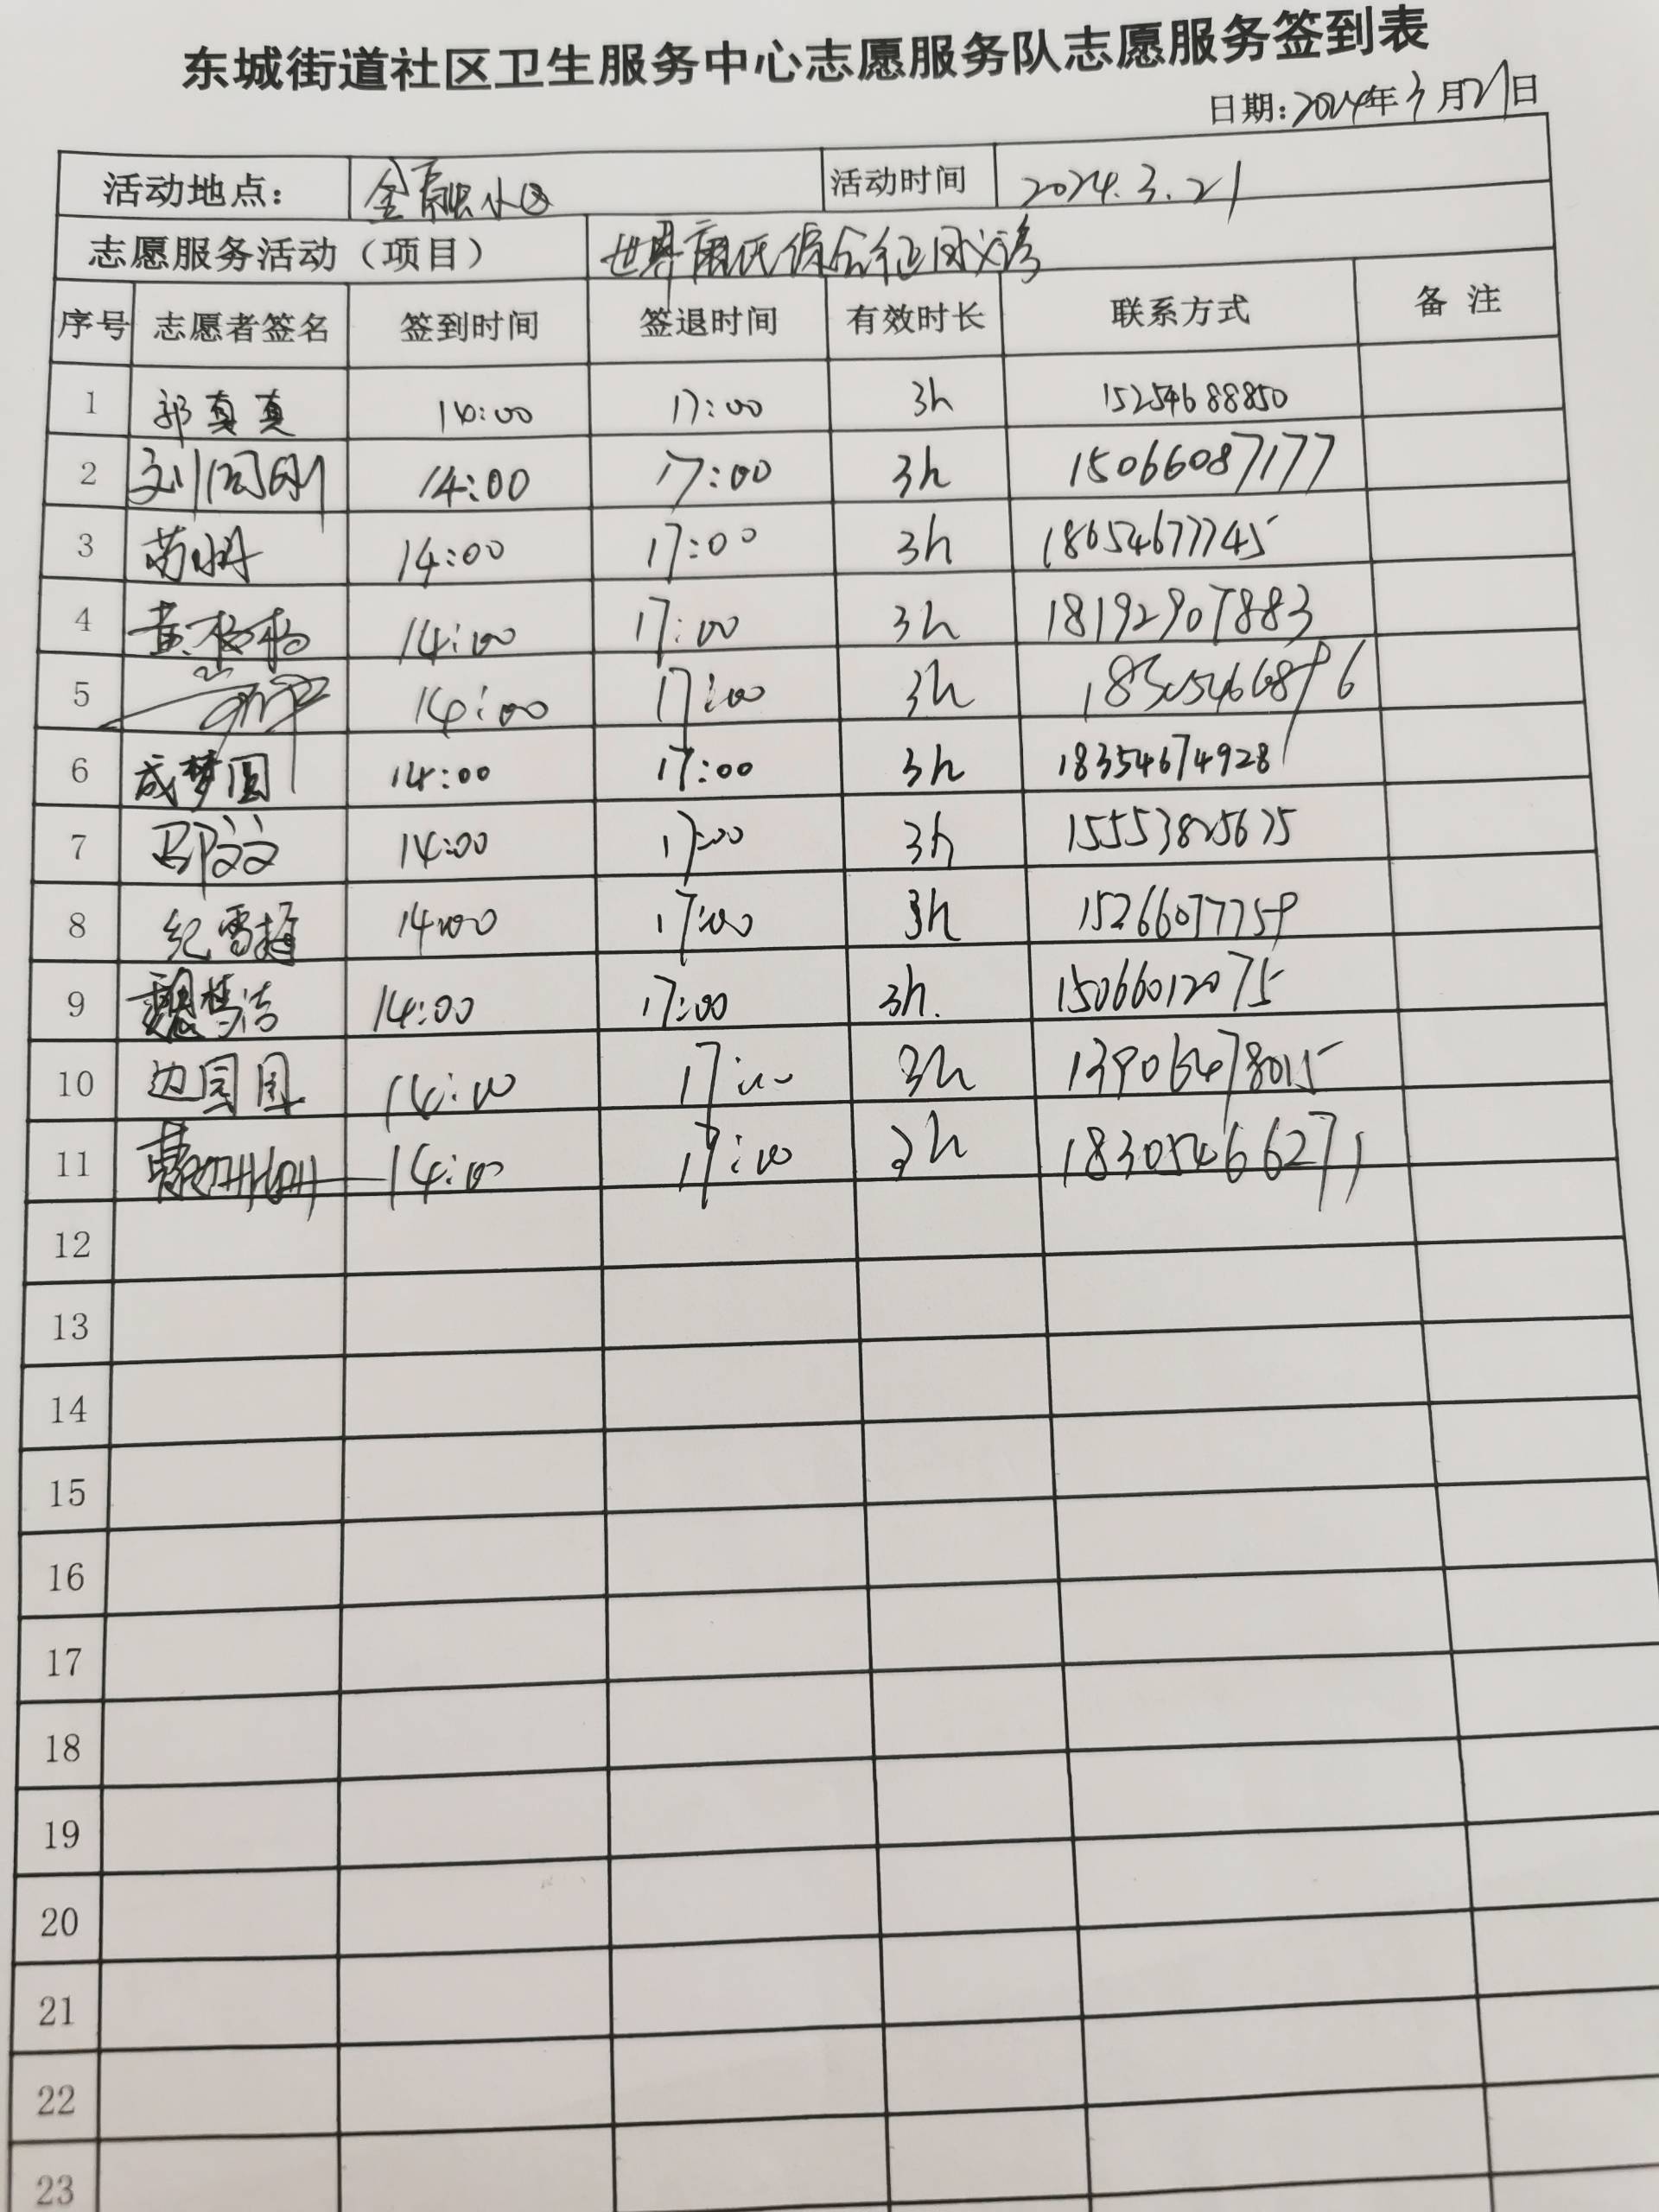 东城街道社区卫生服务中心志愿服务队志愿服务签到表
日期:2024年3月21日
活动地点: 金融小区 活动时间 2024.3.21
志愿服务活动（项目） 世界唐氏综合征日义诊
序号 志愿者签名 签到时间 签退时间 有效时长 联系方式 备注
1 郭真真 14:00 17:00 3h 15254688850
2 刘同刚 14:00 17:00 3h 15066087177
3 苗丹 14:00 17:00 3h 18654677745
4 黄杨杨 14:00 17:00 3h 18192907883
5 14:00 17:00 3h
6 成梦圆 14:00 17:00 3h 18354674928
7 邵文文 14:00 17:00 3h 15553825675
8 纪雪梅 14:00 17:00 3h 15266077759
9 魏梦洁 14:00 17:00 3h. 15066012075
10 边圆圆 14:00 17:00 3h 13906478015
11 14:00 17:00 3h 18305466271
12
13
14
15
16
17
18
19
20
21
22
23